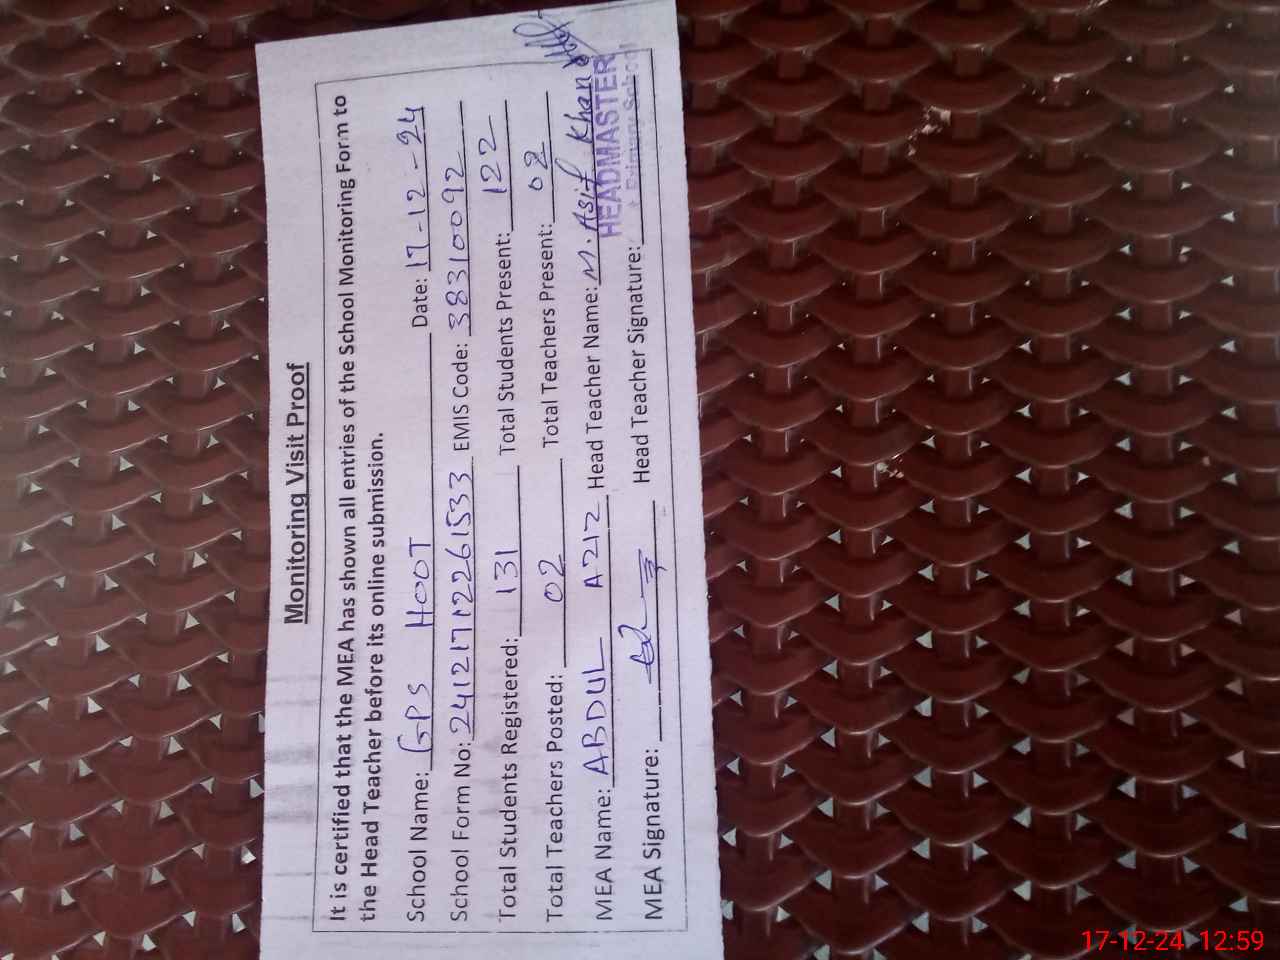 Monitoring Visit Proof
It is certified that the MEA has shown all entries of the School Monitoring Form to
the Head Teacher before its online submission.
School Name: GPS HOOT Date: 17-12-24
School Form No: 24121712261533 EMIS Code: 38310092
Total Students Registered: 131 Total Students Present: 122
Total Teachers Posted: 02 Total Teachers Present: 02
MEA Name: ABDUL AZIZ Head Teacher Name: M. Asif Khan
HEADMASTER
MEA Signature: Head Teacher Signature:
Primary School
17-12-24 12:59